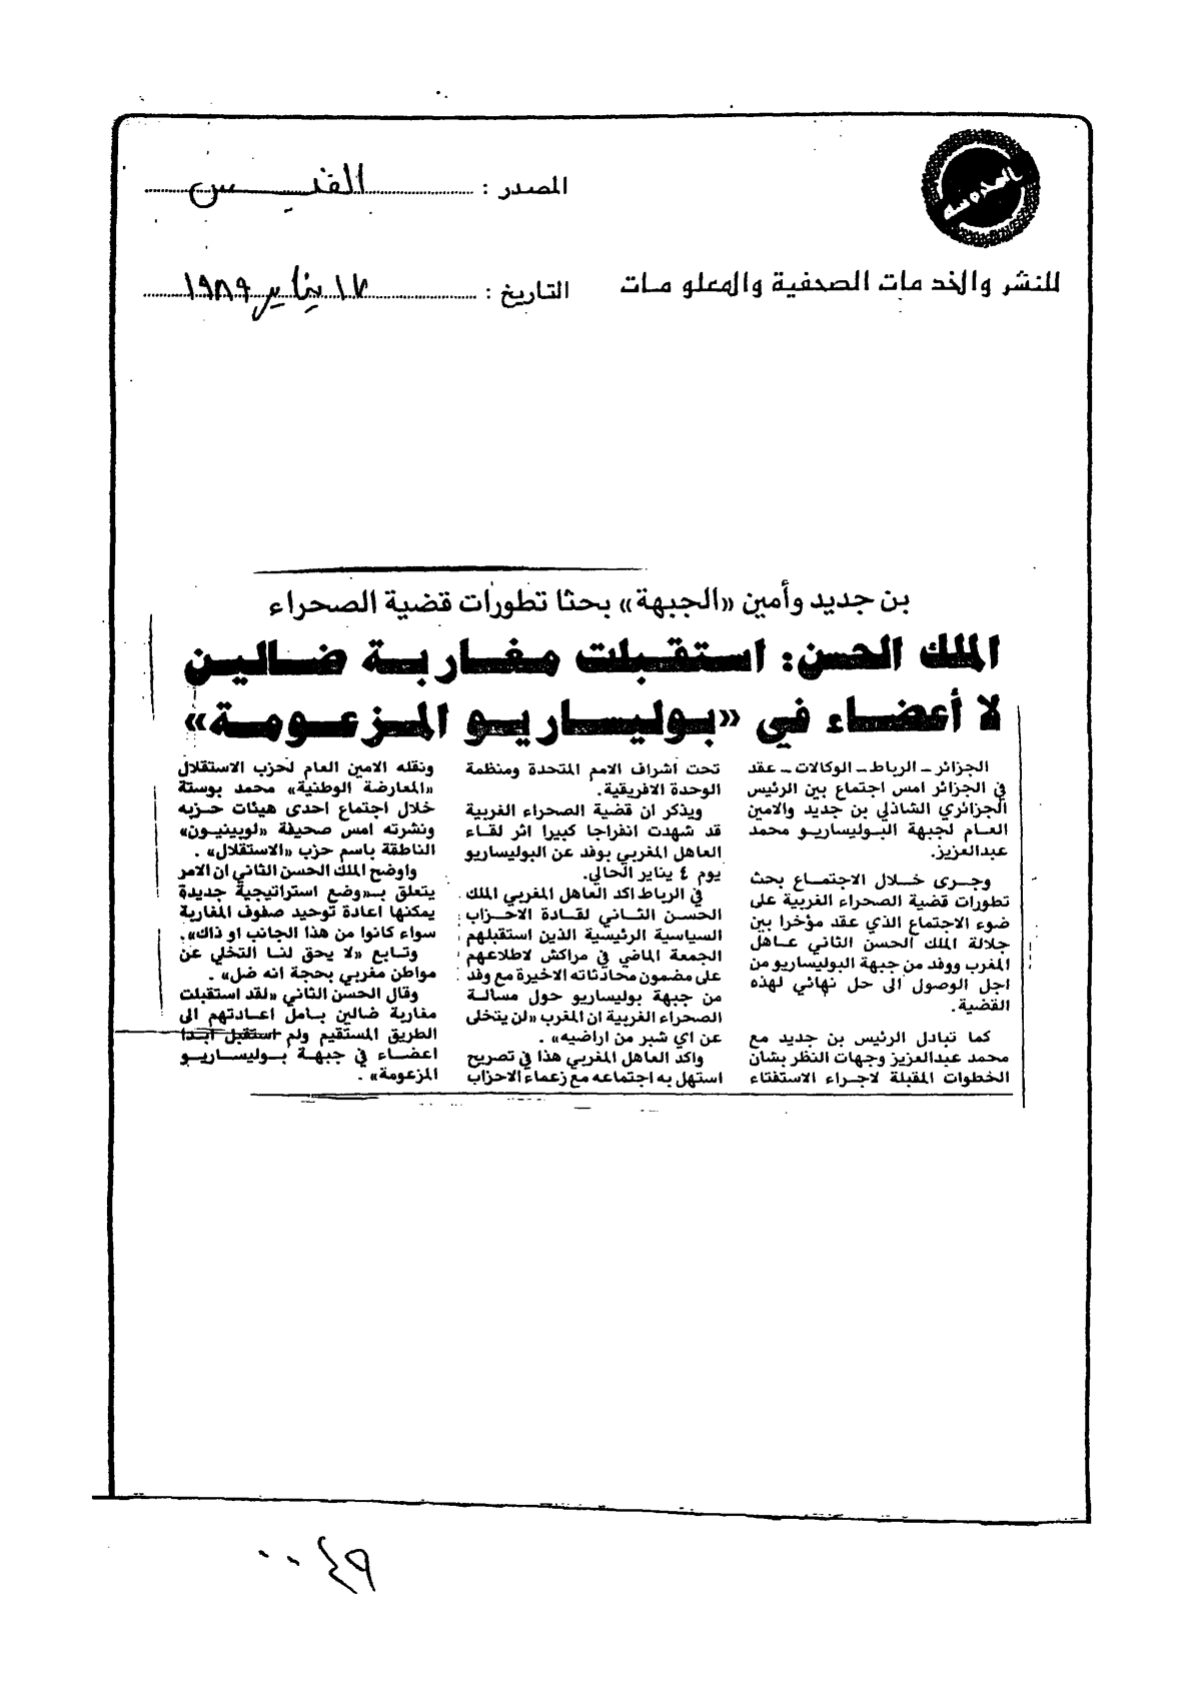 المصدر : القبس
للنشر والخدمات الصحفية والمعلومات
التاريخ : ١٧ يناير ١٩٨٩
بن جديد وأمين «الجبهة» بحثا تطورات قضية الصحراء
الملك الحسن: استقبلت مغاربة ضالين
لا أعضاء في «بوليساريو المزعومة»
الجزائر ـ الرباط ـ الوكالات ـ عقد
في الجزائر امس اجتماع بين الرئيس
الجزائري الشاذلي بن جديد والامين
العام لجبهة البوليساريو محمد
عبدالعزيز.
وجرى خلال الاجتماع بحث
تطورات قضية الصحراء الغربية على
ضوء الاجتماع الذي عقد مؤخرا بين
جلالة الملك الحسن الثاني عاهل
المغرب ووفد من جبهة البوليساريو من
اجل الوصول الى حل نهائي لهذه
القضية.
كما تبادل الرئيس بن جديد مع
محمد عبدالعزيز وجهات النظر بشان
الخطوات المقبلة لاجراء الاستفتاء
تحت اشراف الامم المتحدة ومنظمة
الوحدة الافريقية.
ويذكر ان قضية الصحراء الغربية
قد شهدت انفراجا كبيرا اثر لقاء
العاهل المغربي بوفد عن البوليساريو
يوم ٤ يناير الحالي.
في الرباط اكد العاهل المغربي الملك
الحسن الثاني لقادة الاحزاب
السياسية الرئيسية الذين استقبلهم
الجمعة الماضي في مراكش لاطلاعهم
على مضمون محادثاته الاخيرة مع وفد
من جبهة بوليساريو حول مسالة
الصحراء الغربية ان المغرب «لن يتخلى
عن اي شبر من اراضيه» .
واكد العاهل المغربي هذا في تصريح
استهل به اجتماعه مع زعماء الاحزاب
ونقله الامين العام لحزب الاستقلال
«المعارضة الوطنية» محمد بوستة
خلال اجتماع احدى هيئات حزبه
ونشرته امس صحيفة «لوبينيون»
الناطقة باسم حزب «الاستقلال» .
واوضح الملك الحسن الثاني ان الامر
يتعلق بـ«وضع استراتيجية جديدة
يمكنها اعادة توحيد صفوف المغاربة
سواء كانوا من هذا الجانب او ذاك».
وتابع «لا يحق لنا التخلي عن
مواطن مغربي بحجة انه ضل» .
وقال الحسن الثاني «لقد استقبلت
مغاربة ضالين بامل اعادتهم الى
الطريق المستقيم ولم استقبل ابدا
اعضاء في جبهة بوليساريو
المزعومة» .